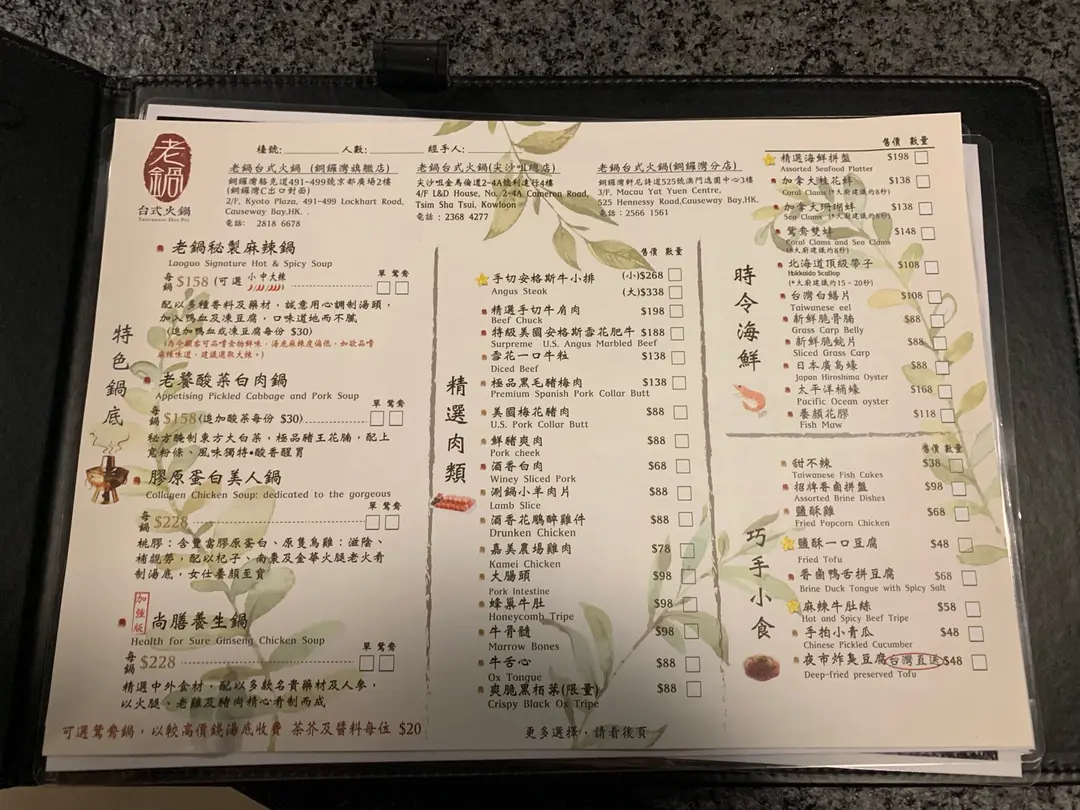 老鍋
台式火鍋
Taiwanese Hot Pot
檯號: 人數: 經手人:
老鍋台式火鍋 (銅鑼灣旗艦店)
銅鑼灣駱克道491-499號京都廣場2樓
(銅鑼灣C出口對面)
2/F, Kyoto Plaza, 491-499 Lockhart Road,
Causeway Bay,HK. .
電話: 2818 6678
老鍋台式火鍋(尖沙咀總店)
尖沙咀金馬倫道2-4A號利達行4樓
4/F L&D House, No. 2-4A Cameron Road,
Tsim Sha Tsui, Kowloon
電話 : 2368 4277
老鍋台式火鍋(銅鑼灣分店)
銅鑼灣軒尼詩道525號澳門逸園中心3樓
3/F, Macau Yat Yuen Centre,
525 Hennessy Road,Causeway Bay,HK.
電話 : 2566 1561
特色鍋底
老鍋秘製麻辣鍋
Laoguo Signature Hot & Spicy Soup
單 鴛鴦
每鍋 $158 (可選 小 中 大辣
配以多種香料及藥材,誠意用心調制湯頭,
加入鴨血及凍豆腐,口味道地而不膩
(追加鴨血或凍豆腐每份 $30)
(為令顧客可品嚐食物鮮味,湯底麻辣度偏低,如欲品嚐
麻辣味道,建議選取大辣。)
老饕酸菜白肉鍋
Appetising Pickled Cabbage and Pork Soup
單 鴛鴦
每鍋 $158(追加酸菜每份 $30)
秘方醃制東方大白菜,極品豬王花腩,配上
寬粉條、風味獨特•酸香醒胃
膠原蛋白美人鍋
Collagen Chicken Soup: dedicated to the gorgeous
單 鴛鴦
每鍋 $228
桃膠:含豐富膠原蛋白、原隻烏雞:滋陰、
補氣勞,配以杞子、南棗及金華火腿老火肴
制湯底,女仕養顏至寶
加強版
尚膳養生鍋
Health for Sure Ginseng Chicken Soup
單 鴛鴦
每鍋 $228
精選中外食材,配以多款名貴藥材及人參,
以火腿、老雞及豬肉精心肴制而成
可選鴛鴦鍋,以較高價錢湯底收費 茶芥及醬料每位 $20
精選肉類
售價 數量
手切安格斯牛小排 (小)$268
Angus Steak (大)$338
精選手切牛肩肉 $198
Beef Chuck
特級美國安格斯雪花肥牛 $188
Surpreme U.S. Angus Marbled Beef
雪花一口牛粒 $138
Diced Beef
極品黑毛豬梅肉 $138
Premium Spanish Pork Collar Butt
美國梅花豬肉 $88
U.S. Pork Collar Butt
鮮豬爽肉 $88
Pork cheek
酒香白肉 $68
Winey Sliced Pork
涮鍋小羊肉片 $88
Lamb Slice
酒香花鵰醉雞件 $88
Drunken Chicken
嘉美農場雞肉 $78
Kamei Chicken
大腸頭 $98
Pork Intestine
蜂巢牛肚 $98
Honeycomb Tripe
牛骨髓 $98
Marrow Bones
牛舌心 $88
Ox Tongue
爽脆黑栢葉(限量) $88
Crispy Black Ox Tripe
更多選擇,請看後頁
時令海鮮
售價 數量
精選海鮮拼盤 $198
Assorted Seafood Platter
加拿大桂花蚌 $138
Coral Clams (*大廚建議約8秒)
加拿大珊瑚蚌 $138
Sea Clams (*大廚建議約8秒)
鴛鴦雙蚌 $148
Coral Clams and Sea Clams
(*大廚建議約8秒)
北海道頂級帶子 $108
Hokkaido Scallop
(*大廚建議約15-20秒)
台灣白鱔片 $108
Taiwanese eel
新鮮脆骨腩 $88
Grass Carp Belly
新鮮脆鯇片 $88
Sliced Grass Carp
日本廣島蠔 $88
Japan Hiroshima Oyster
太平洋桶蠔 $168
Pacific Ocean oyster
養顏花膠 $118
Fish Maw
巧手小食
售價 數量
甜不辣 $38
Taiwanese Fish Cakes
招牌香鹵拼盤 $98
Assorted Brine Dishes
鹽酥雞 $68
Fried Popcorn Chicken
鹽酥一口豆腐 $48
Fried Tofu
香鹵鴨舌拼豆腐 $68
Brine Duck Tongue with Spicy Salt
麻辣牛肚絲 $58
Hot and Spicy Beef Tripe
手拍小青瓜 $48
Chinese Pickled Cucumber
夜市炸臭豆腐 台灣直送 $48
Deep-fried preserved Tofu